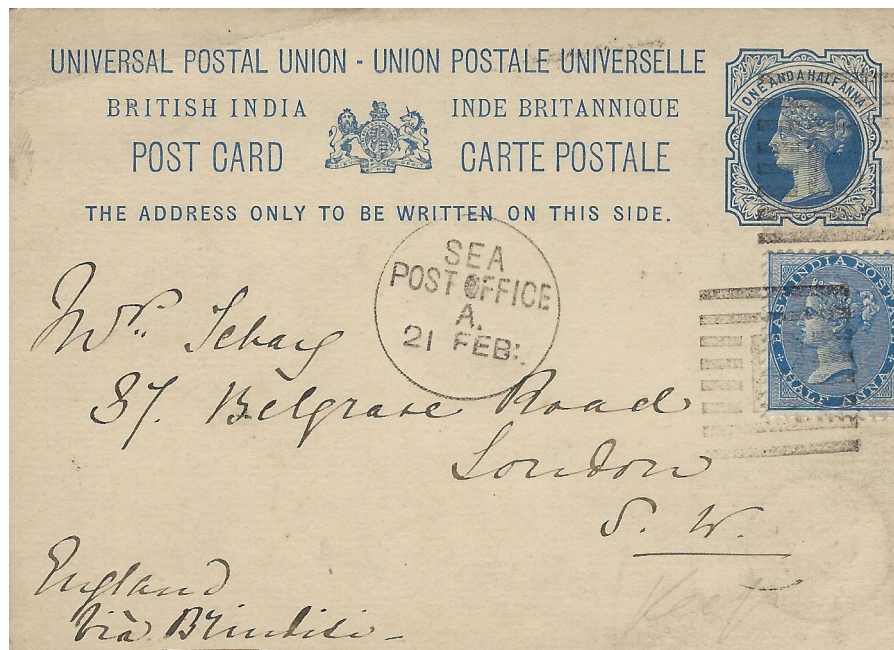 UNIVERSAL POSTAL UNION - UNION POSTALE UNIVERSELLE
BRITISH INDIA INDE BRITANNIQUE
POST CARD CARTE POSTALE
THE ADDRESS ONLY TO BE WRITTEN ON THIS SIDE.
ONE AND A HALF ANNA
SEA
POST OFFICE
A.
21 FEB:
EAST INDIA POSTA
HALF ANNA
Mrs. Scharf
37. Belgrave Road
London
S. W.
England
Viâ Brindisi